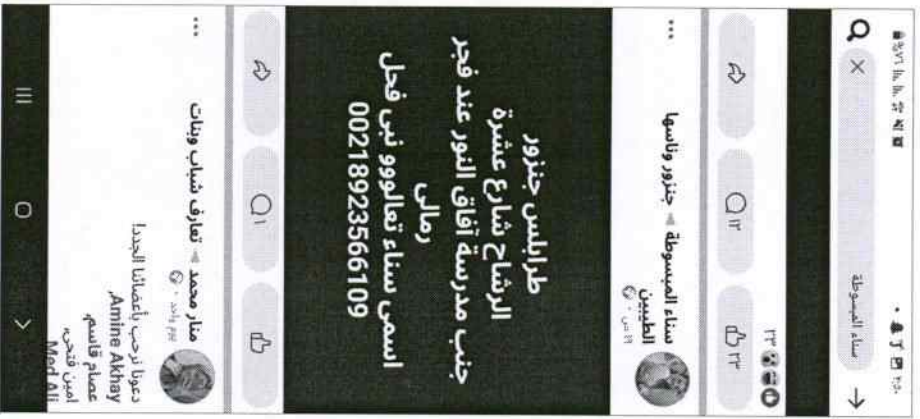 ٤:٥٠
%٧٦
سناء المبسوطة
٢٣
٢٣
١٢
سناء المبسوطة ◂ جنزور وناسها
الطيبين
١٩ س
طرابلس جنزور
الرشاح شارع عشرة
جنب مدرسة آفاق النور عند فجر
رمالى
اسمى سناء تعالووو نبى فحل
00218923566109
١
منار محمد ◂ تعارف شباب وبنات
يوم واحد
دعونا نرحب بأعضائنا الجدد!
Amine Akhay,
عصام قاسم,
امين فتحي,
Mod Ali